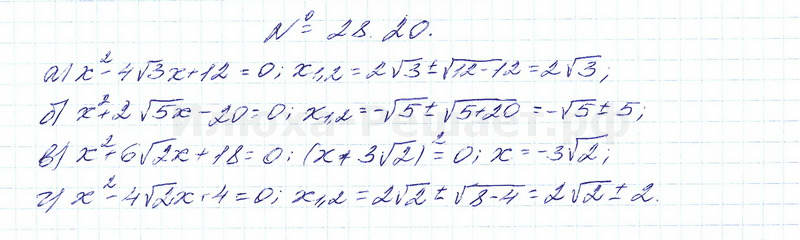 № 28.20.
а) x² - 4√3x + 12 = 0; x₁,₂ = 2√3 ± √12-12 = 2√3;
б) x² + 2√5x - 20 = 0; x₁,₂ = -√5 ± √5+20 = -√5 ± 5;
в) x² + 6√2x + 18 = 0; (x + 3√2)² = 0; x = -3√2;
г) x² - 4√2x + 4 = 0; x₁,₂ = 2√2 ± √8-4 = 2√2 ± 2.